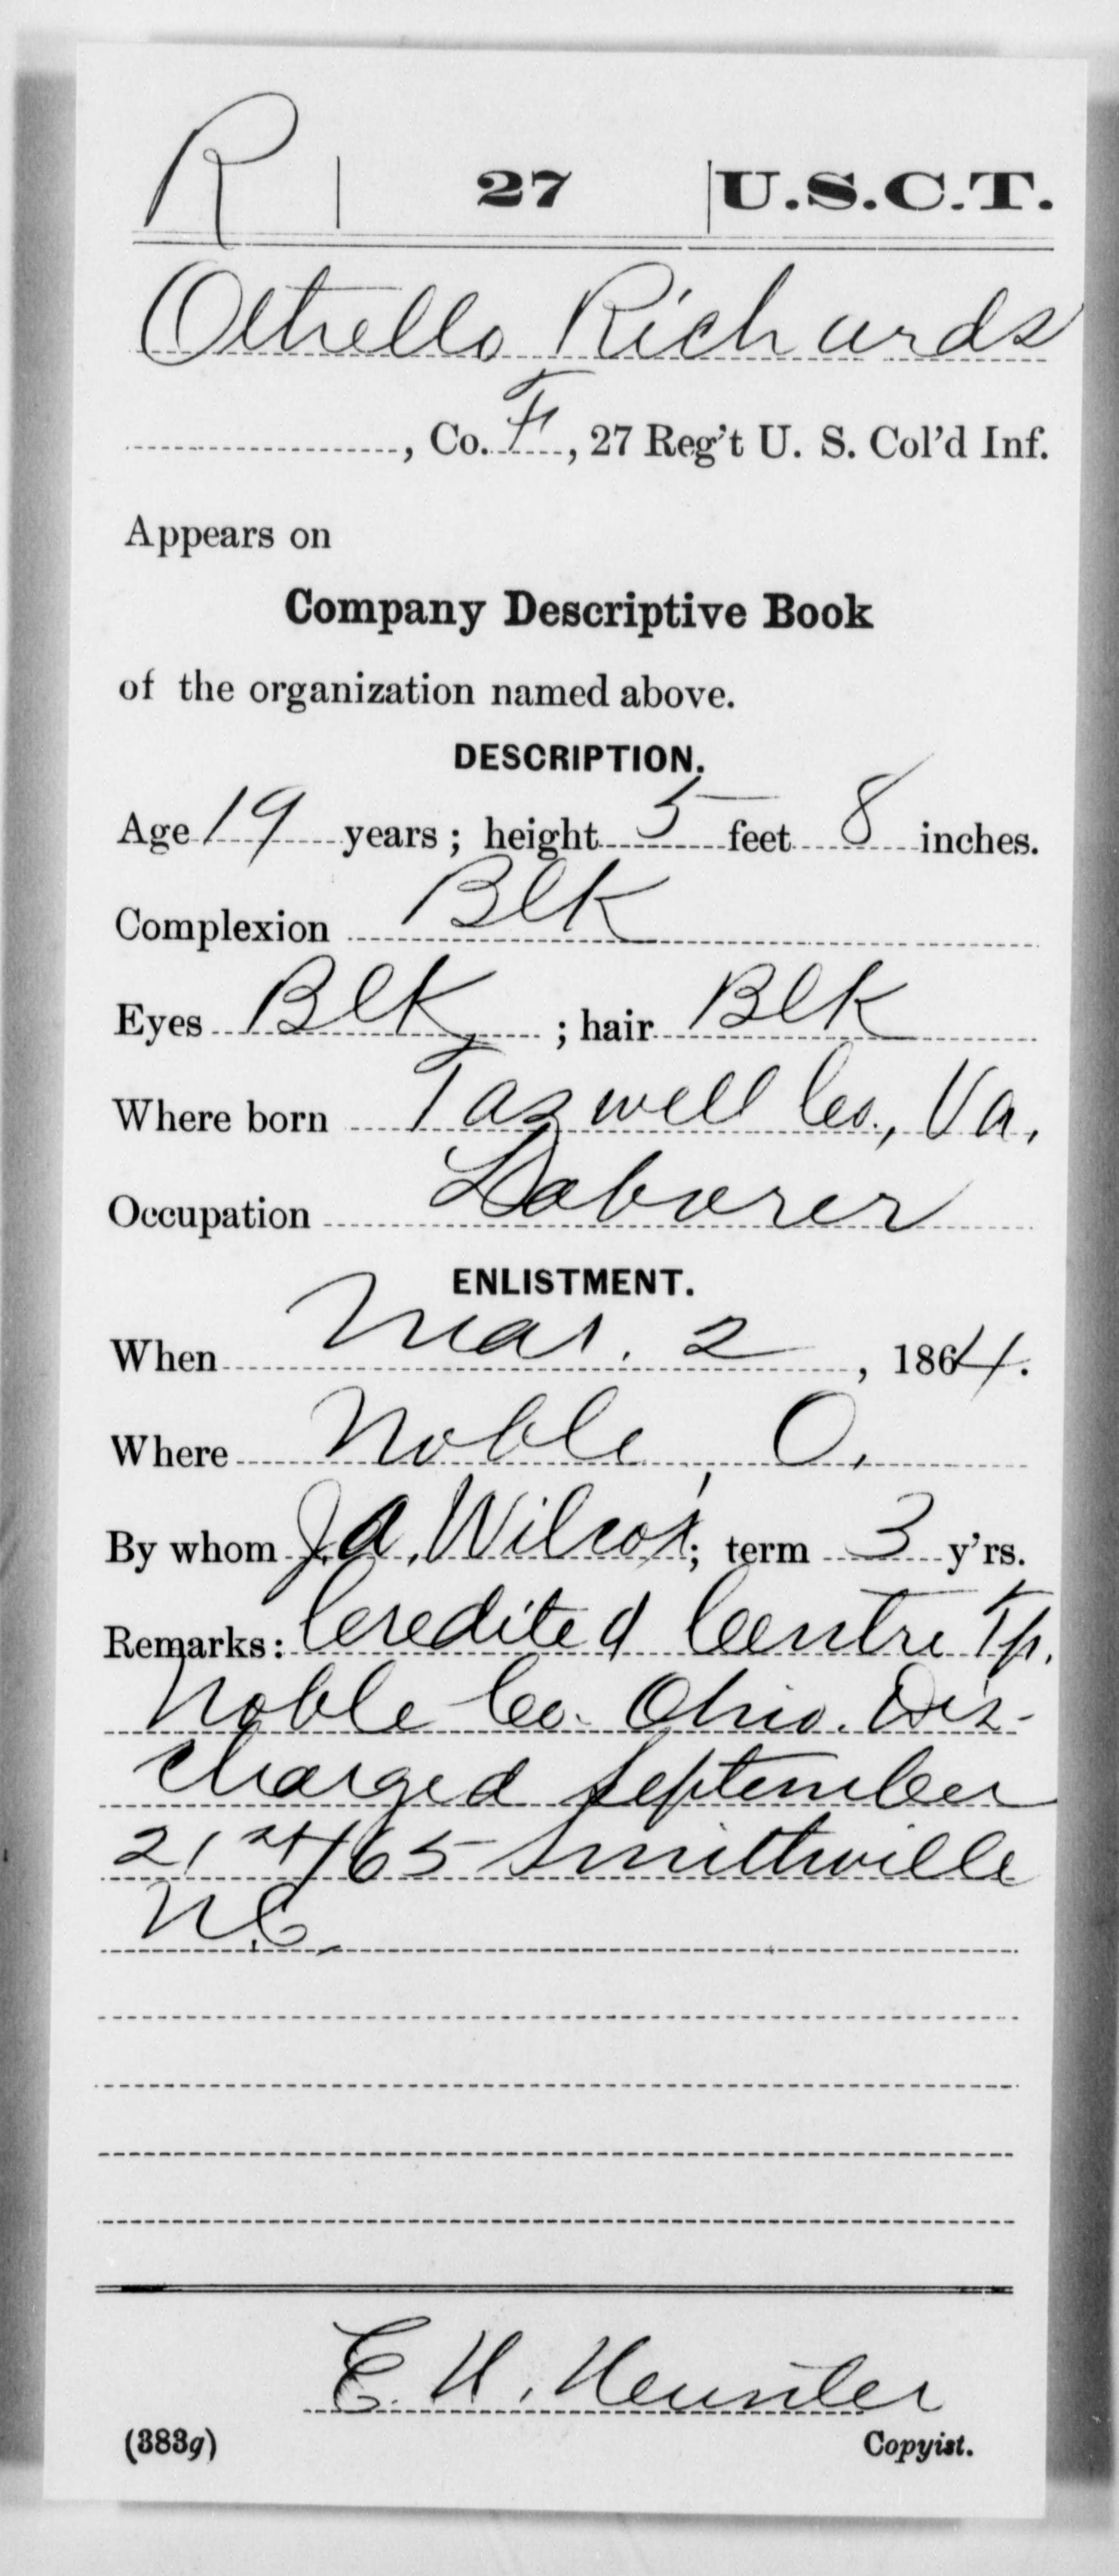 R | 27 | U.S.C.T.
Othello Richards
, Co. F, 27 Reg't U. S. Col'd Inf.
Appears on
Company Descriptive Book
of the organization named above.
DESCRIPTION.
Age 19 years; height 5 feet 8 inches.
Complexion Blk
Eyes Blk ; hair Blk
Where born Tazwell Co., Va.
Occupation Laborer
ENLISTMENT.
When Mar. 2, 1864.
Where Noble, O.
By whom J.A. Wilcox; term 3 y'rs.
Remarks: Credited Centre Tp.
Noble Co. Ohio. Dis-
charged September
21st/65 Smithville
N.C.
C. H.
(383g) Copyist.